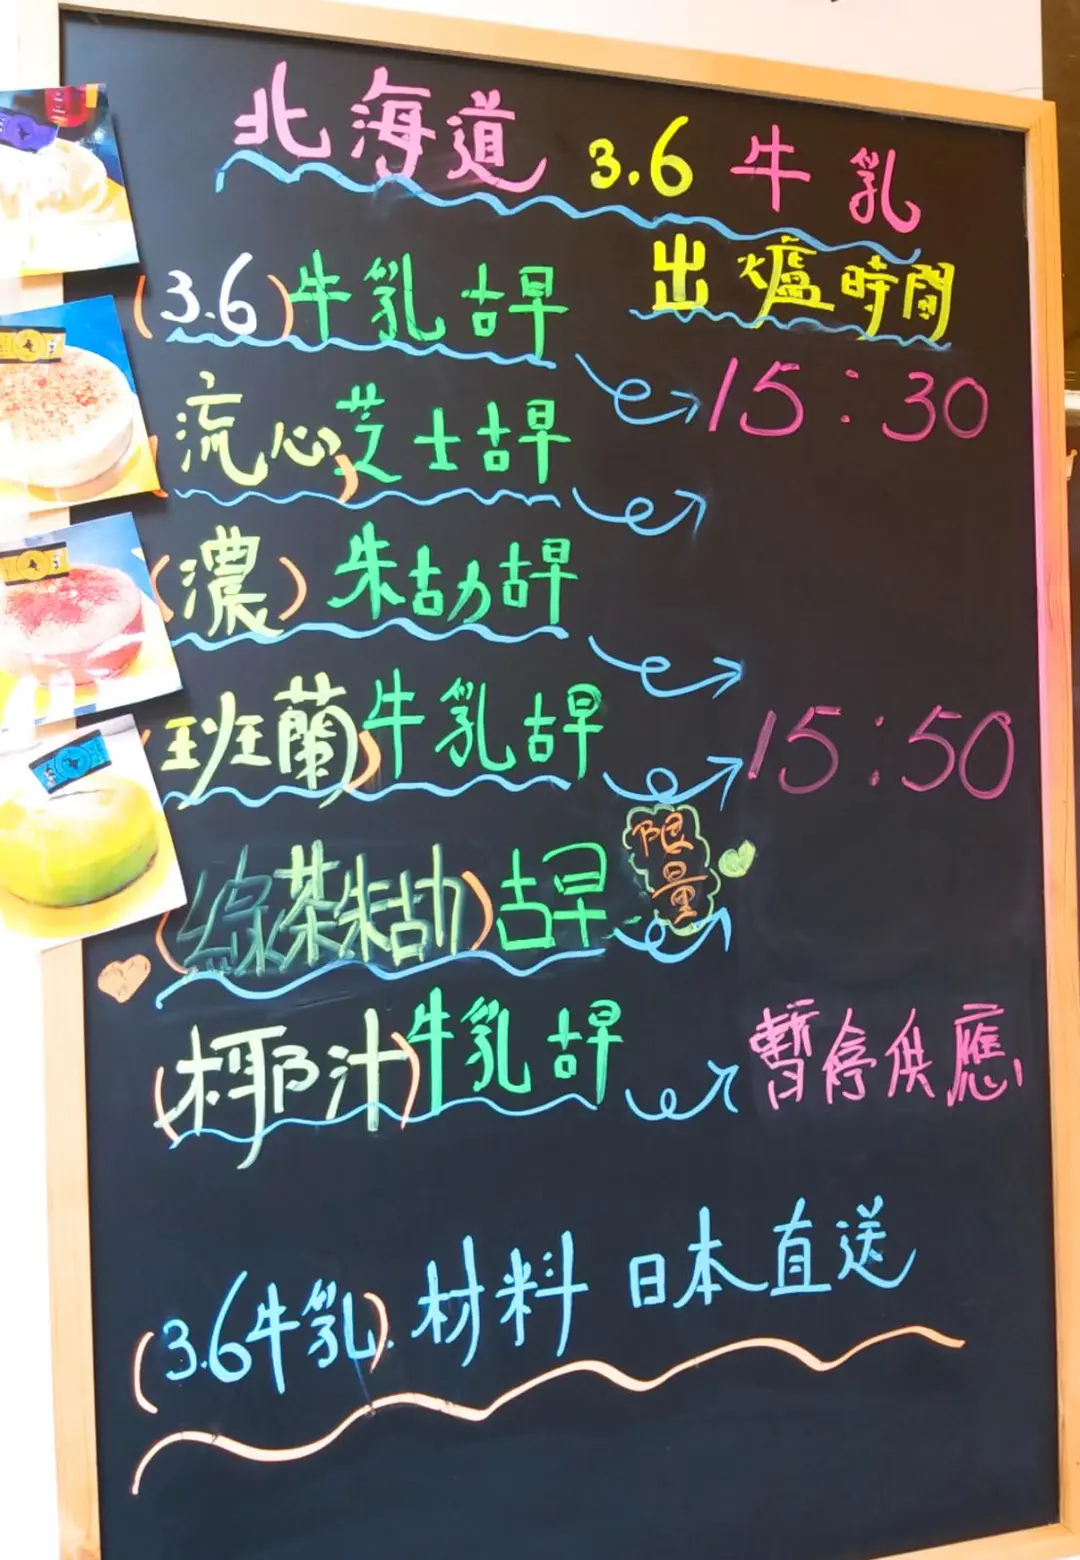 北海道 3.6 牛乳
出爐時間
(3.6)牛乳古早
15:30
流心芝士古早
(濃)朱古力古早
班蘭)牛乳古早
15:50
(綠茶朱古力)古早
限量
(椰汁)牛乳古早
暫停供應
(3.6牛乳) 材料 日本直送